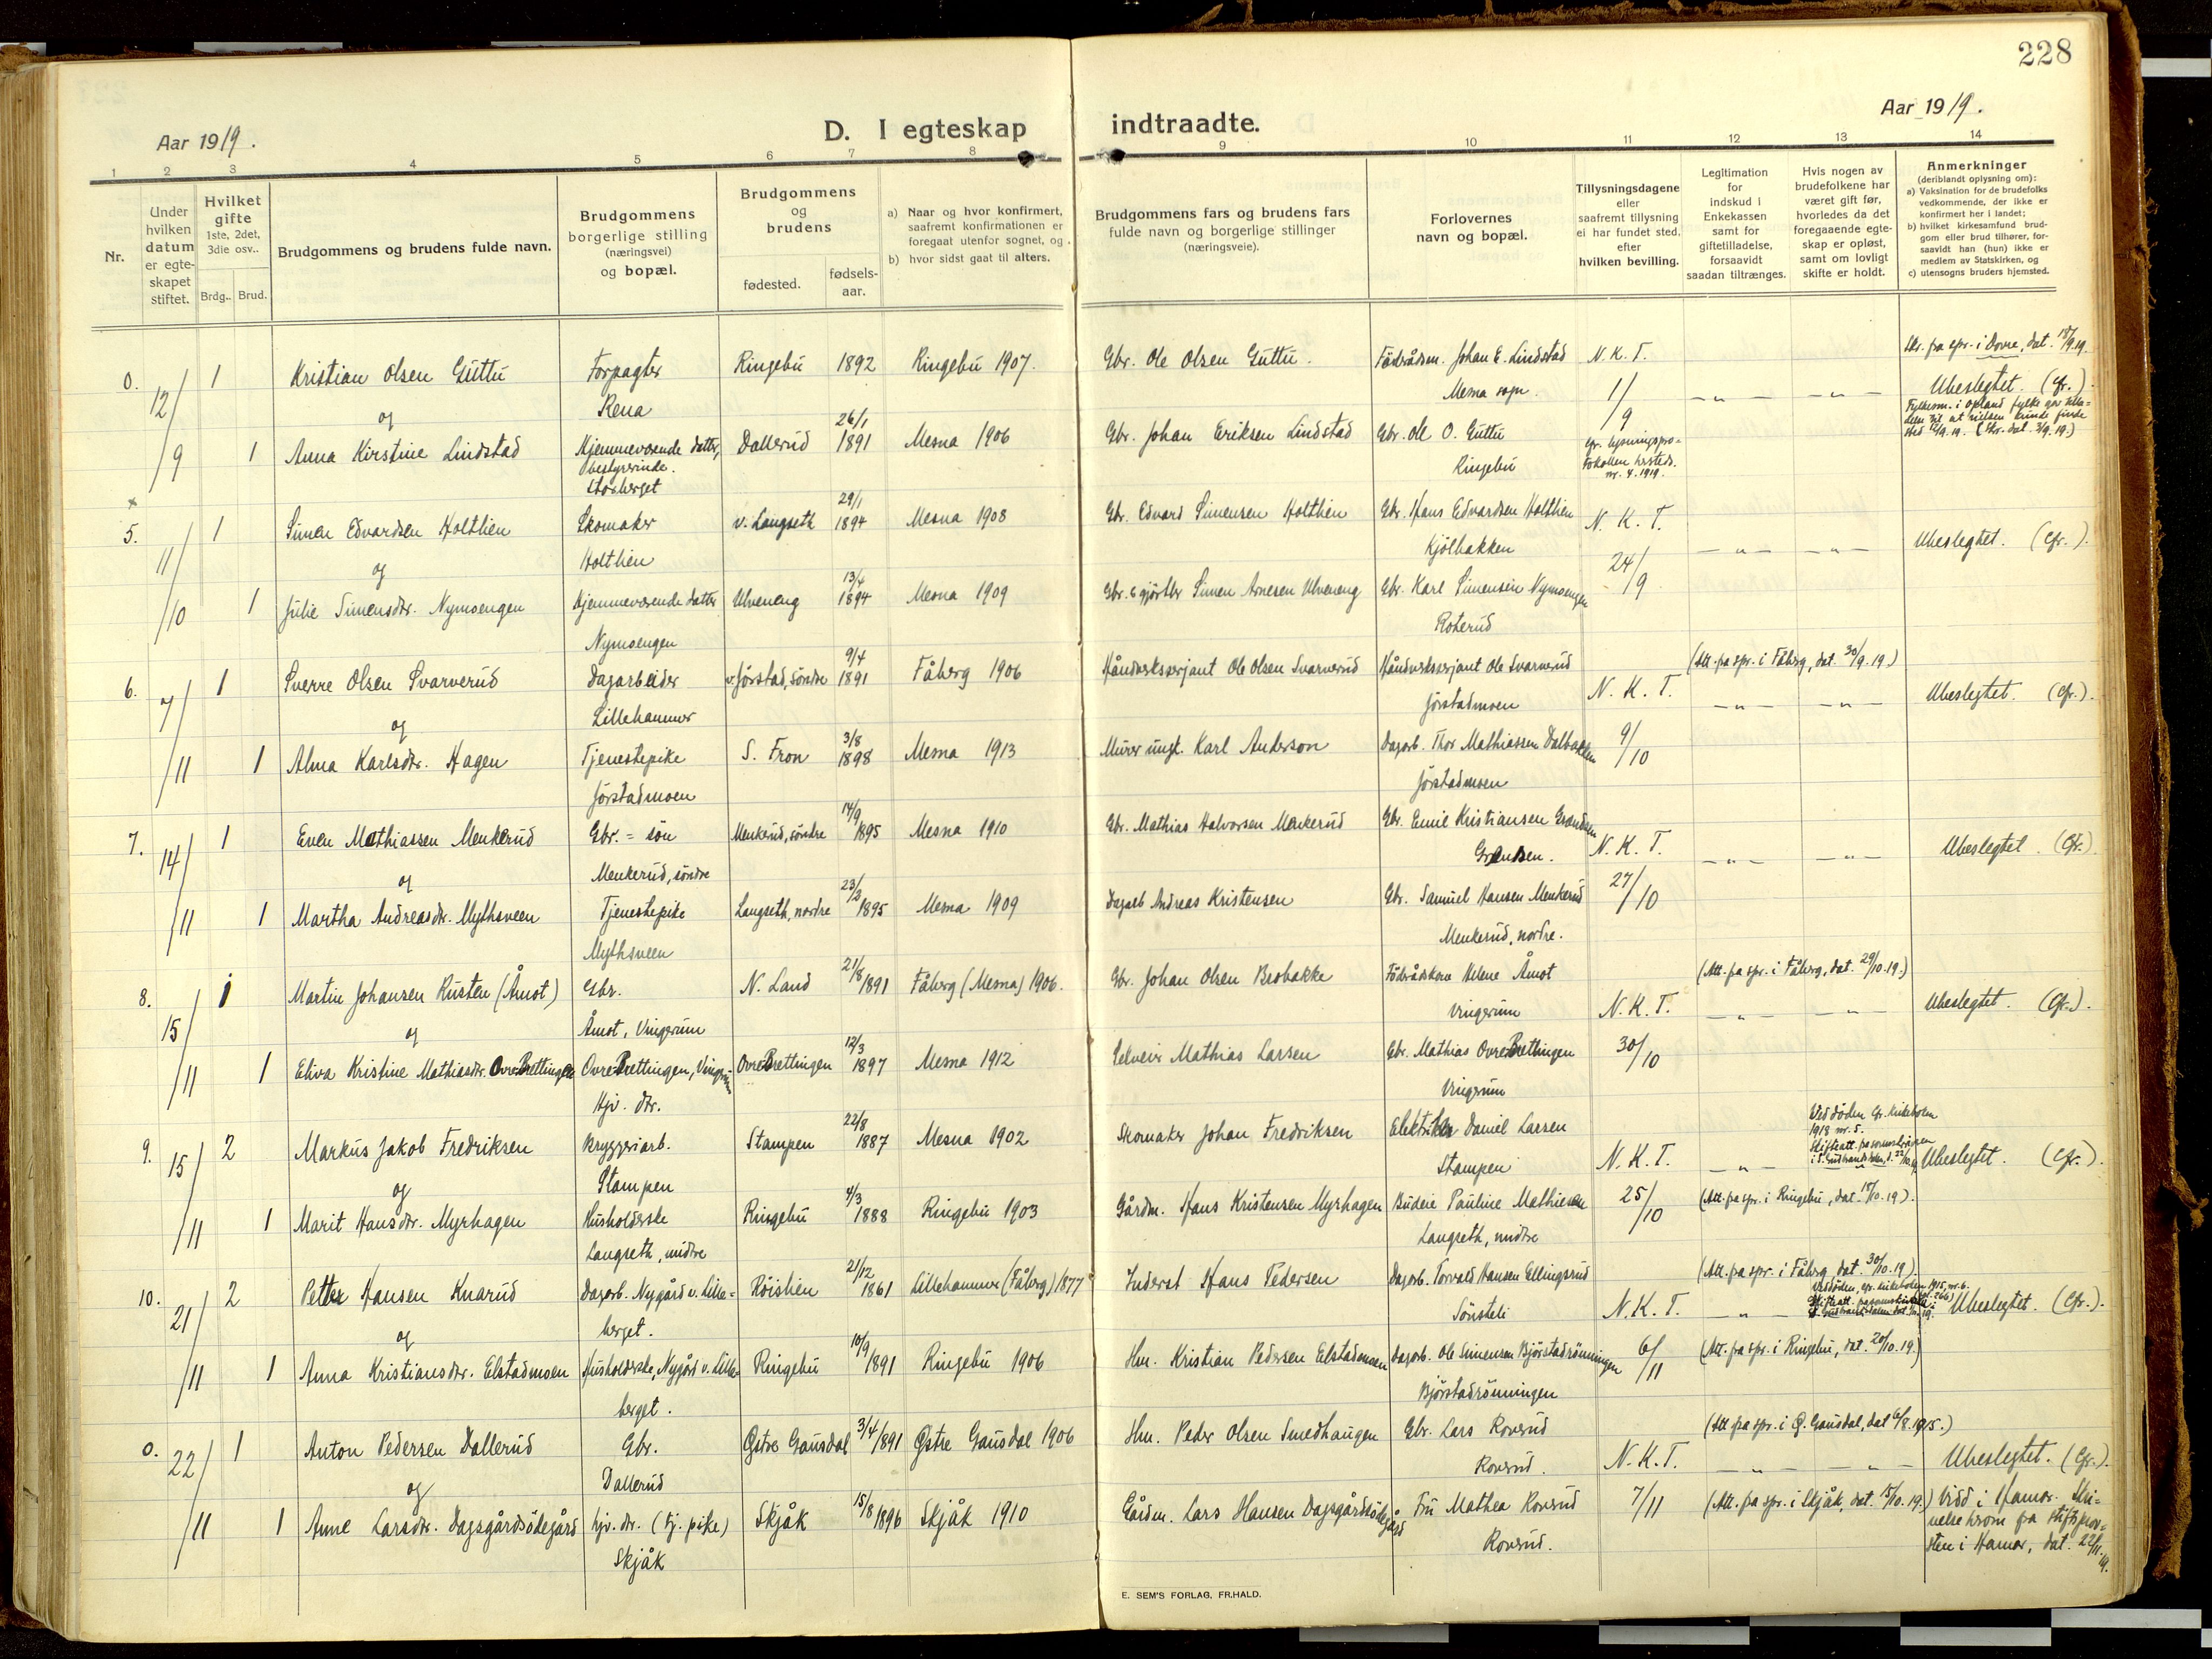 228
Aar 1919.
D. I egteskap indtraadte.
Aar 1919.
1 2 3 4 5 6 7 8 9 10 11 12 13 14
Nr.
Under hvilken datum er egteskapet stiftet.
Hvilket gifte 1ste, 2det, 3die osv..
Brdg.. Brud.
Brudgommens og brudens fulde navn.
Brudgommens borgerlige stilling (næringsvei) og bopæl.
Brudgommens og brudens
fødested.
fødsels-aar.
a) Naar og hvor konfirmert, saafremt konfirmationen er foregaat utenfor sognet, og
b) hvor sidst gaat til alters.
Brudgommens fars og brudens fars fulde navn og borgerlige stillinger (næringsveie).
Forlovernes navn og bopæl.
Tillysningsdagene eller saafremt tillysning ei har fundet sted. efter hvilken bevilling.
Legitimation for indskud i Enkekassen samt for giftetilladelse, forsaavidt saadan tiltrænges.
Hvis nogen av brudefolkene har været gift før, hvorledes da det foregaaende egteskap er opløst, samt om lovligt skifte er holdt.
Anmerkninger (deriblandt oplysning om):
a) Vaksination for de brudefolks vedkommende, der ikke er konfirmert her i landet;
b) hvilket kirkesamfund brudgom eller brud tilhører, forsaavidt han (hun) ikke er medlem av Statskirken, og
c) utensogns bruders hjemsted.
0. 12/9 1 Kristian Olsen Guttu Forpagter Rena Ringebu 1892 Ringebu 1907. Gbr. Ole Olsen Guttu. Föderådsm. Johan E. Lindstad Mesna sogn. N. K. T. 1/9 — " — — " — Skr. fra spr. i Dovre, dat. 18/9.19. Ubeslegtet. (cfr.).
og
1 Anna Kirstine Lindstad Hjemmeværende datter, bestyrerinde. Storberget Dallerud 26/1 1891 Mesna 1906 Gbr. Johan Eriksen Lindstad Gbr. Ole O. Guttu Ringebu cfr. lysningsprotokollen hersteds. nr. 4. 1919. Fylkesm. i Opland fylke gav tilladelse til at vielsen kunde finde sted
5. 11/10 1 Simen Edvardsen Holthien Skomaker Holthien v. Langseth 29/1 1894 Mesna 1908 Gbr. Edvard Simensen Holthien Gbr. Hans Edvardsen Holthien Kjölbakken N. K. T. 24/9 — " — — " — Ubeslegtet. (cfr.).
og
1 Julie Simensdtr. Nymoengen Hjemmeværende datter Nymoengen Ulveneng 13/4 1894 Mesna 1909 Gbr. Simen Arnesen Ulveneng Gbr. Karl Simensen Nymoengen Roterud
6. 7/11 1 Sverre Olsen Svarverud Dagarbeider Lillehammer v. Jörstad, söndre 9/4 1891 Fåberg 1906 Håndverkserjant Ole Olsen Svarverud Håndverkserjant Ole Svarverud Jörstadmoen N. K. T. 9/10 (Att. fra spr. i Fåbrg, dat. 30/9.19.) — " — — " — Ubeslegtet. (cfr.).
og
1 Alma Karlsdtr. Hagen Tjenestepike Jörstadmoen S. Fron 3/8 1898 Mesna 1913 Murer ungk. Karl Anderson Dagarb. Thor Mathiassen Dalbakken Jörstadmoen
7. 14/11 1 Even Mathiassen Menkerud Gbr. = sön Menkerud, söndre Menkerud, söndre 14/9 1895 Mesna 1910 Gbr. Mathias Halvorsen Menkerud Gbr. Emil Kristiansen Grandsen Grandsen. N. K. T. 27/10 — " — — " — Ubeslegtet. (cfr.).
og
1 Martha Andreasdtr. Mythsveen Tjenestepike Mythsveen Langseth, nordre 23/2 1895 Mesna 1909 Dagarb Andreas Kristensen Gbr. Samuel Hansen Menkerud Menkerud, nordre.
8. 15/11 1 Martin Johansen Rusten (Åmot) Gbr. Åmot, Vingerum N. Land 21/8 1891 Fåberg (Mesna) 1906. Gbr. Johan Olsen Brobakke Föderådskone Helene Åmot Vingerum N. K. T. 30/10 (Att. fra spr. i Fåberg, dat. 29/10.19.) — " — — " — Ubeslegtet. (cfr.).
og
1 Eliva Kristine Mathiasdtr. Övre Brettingen Övre Brettingen, Vingrum Hjv. dtr. Övre Brettingen 12/3 1897 Mesna 1912 Selveier Mathias Larsen Gbr. Mathias Övre Brettingen Vingerum
9. 15/11 2 Markus Jakob Fredriksen Bryggeriarb. Stampen Stampen 22/8 1887 Mesna 1902 Skomaker Johan Fredriksen Elektriker Daniel Larsen Stampen N. K. T. 25/10 — " — Ved döden cfr. kirkeboken 1918 nr. 5. Ubeslegtet. (cfr.).
og
1 Marit Hansdtr. Myrhagen Husholderske Langseth, midtre Ringebu 4/3 1888 Ringebu 1903 Gårdm. Hans Kristensen Myrhagen Budeie Pauline Mathiesen Langseth, midtre (Att. fra spr. i Ringebu, dat. 15/10.19).
10. 21/11 2 Petter Hansen Knarud Dagarb. Nygård v. Lilleberget. Röislien 21/12 1861 Lillehammer (Fåberg) 1877 Inderst Hans Pedersen Dagarb. Torvald Hansen Ellingsrud Sönsteli N. K. T. 6/11 (Att. fra spr. i Fåberg, dat. 30/10.19). — " — Ved döden, cfr. kirkeboken 1915, nr. 6. Ubeslegtet. (cfr.).
og
1 Anna Kristiansdtr. Elstadmoen Husholderske, Nygård v. Lilleberget. Ringebu 10/9 1891 Ringebu 1906 Hm. Kristian Pedersen Elstadmoen Dagarb. Ole Simensen Björstadrönningen Bjørstadrönningen (Att. fra spr. i Ringebu, dat. 20/10.19.)
0. 22/11 1 Anton Pedersen Dallerud Gbr. Dallerud Østre Gausdal 3/4 1891 Østre Gausdal 1906 Hm. Peder Olsen Smedhaugen Gbr. Lars Roverud Roverud. N. K. T. 7/11 (Att. fra spr. i Ø. Gausdal, dat 6/8.1915.) — " — — " — Ubeslegtet. (cfr.).
og
1 Anne Larsdtr. Dagsgårdsödegård hjv. dtr. (tj. pike) Skjåk Skjåk 15/8 1896 Skjåk 1910 Gårdm. Lars Hansen Dagsgårdsödegård Fru Mathea Roverud Roverud. (Att. fra spr. i Skjåk, dat. 15/10.19.) Viad i Hamar. fra stiftsprovsten i Hamar, dat. 22/11.19.
E. SEM'S FORLAG, FR.HALD.